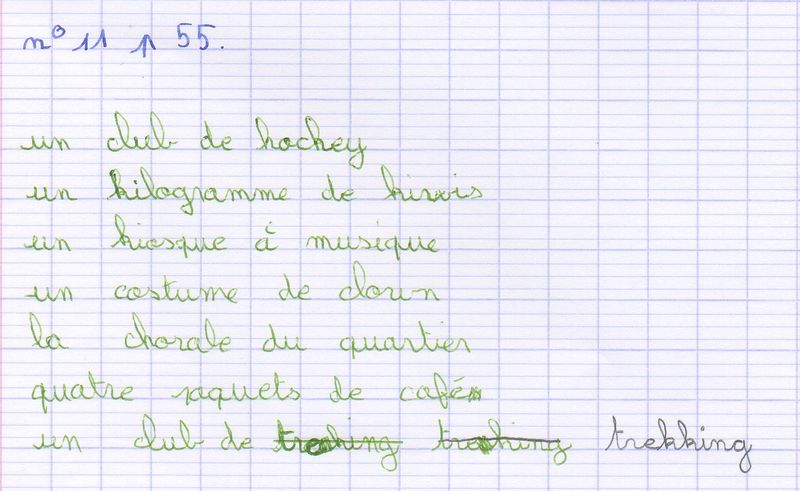 n° 11 p 55.
un club de hockey
un kilogramme de kiwis
un kiosque à musique
un costume de clown
la chorale du quartier
quatre paquets de café
un club de trekking